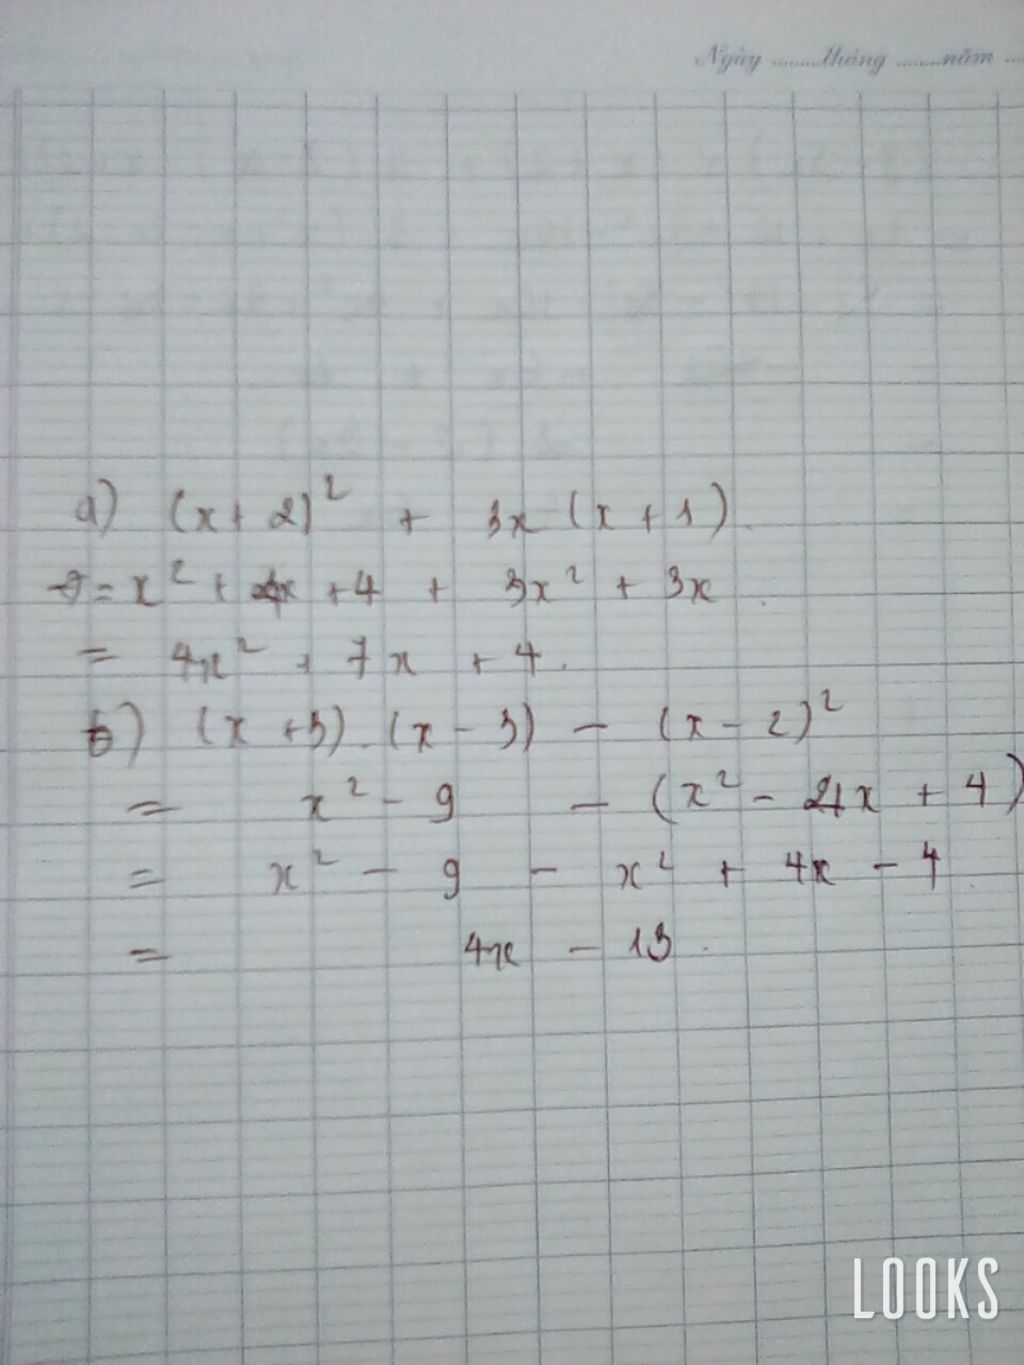 Ngày ........tháng ........năm ...
a) (x + 2)² + 3x (x + 1)
= x² + 4x + 4 + 3x² + 3x
= 4x² + 7x + 4.
b) (x + 3).(x - 3) - (x - 2)²
= x² - 9 - (x² - 4x + 4)
= x² - 9 - x² + 4x - 4
= 4x - 13.
LOOKS